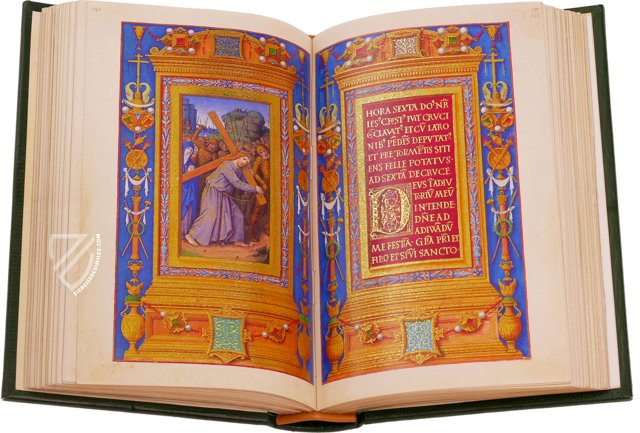 HORA SEXTA DO' NR̄
IES' CRIST' FUIT CRUCI
CLAVAT' ET CŪ LATRO
NIB' PENDĒS DEPUTAT'
ET P̄ TORMĒTIS SITI
ENS FELLE POTATUS·
AD SEXTĀ DE CRUCE
DEUS Ī ADIU
TORIŪ MEŪ
INTENDE·
DN̄E AD
ADIUVĀDŪ
ME FESTĪA· GL̄A PR̄I ET
FILIO ET SP̄VI SANCTO·
THEMISFACSIMILES.COM